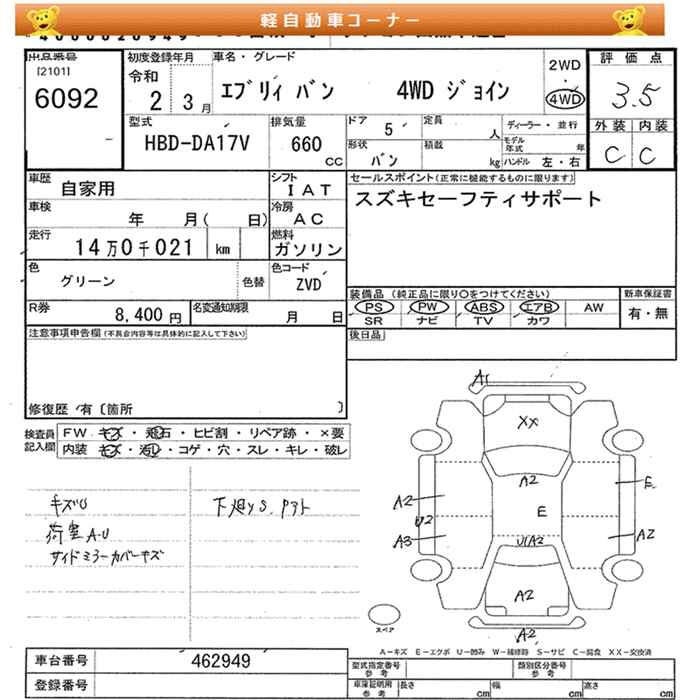 軽自動車コーナー
出品番号
[2101]
6092
初度登録年月
令和
2 3月
車名・グレード
エブリィ バン 4WD ジョイン
2WD
・
4WD
評価点
3.5
外装 内装
C C
型式
HBD-DA17V
排気量
660
cc
ドア 5
定員 人
ディーラー・並行
モデル年式 年
形状 バン
積載 kg
ハンドル 左・右
車歴
自家用
シフト
IAT
セールスポイント(正常に機能するものに限ります)
スズキセーフティサポート
車検
年 月( 日)
冷房
AC
走行
14万0千021 km
燃料
ガソリン
色
グリーン
色替
色コード
ZVD
装備品(純正品に限り○をつけてください)
新車保証書
PS PW ABS エアB AW
有・無
SR ナビ TV カワ
R券
8,400円
名変通知期限
月 日
後日品
注意事項申告欄(不具合内容等は具体的に記入して下さい)
修復歴/有〔箇所 〕
検査員
記入欄
FW キズ・飛石・ヒビ割・リペア跡・×要
内装 キズ・汚レ・コゲ・穴・スレ・キレ・破レ
キズU
下廻りS.アト
荷室A-U
サイドミラーカバーキズ
A1
XX
A2
E
A2
E
U2
A3
A2
U1A2
A2
A2
スペア
A-キズ E-エクボ U-凹み W-補修跡 S-サビ C-腐食 XX-交換済
車台番号
462949
登録番号
型式指定番号
参考
類別区分番号
参考
車庫証明用
参考
長さ cm
幅 cm
高さ cm